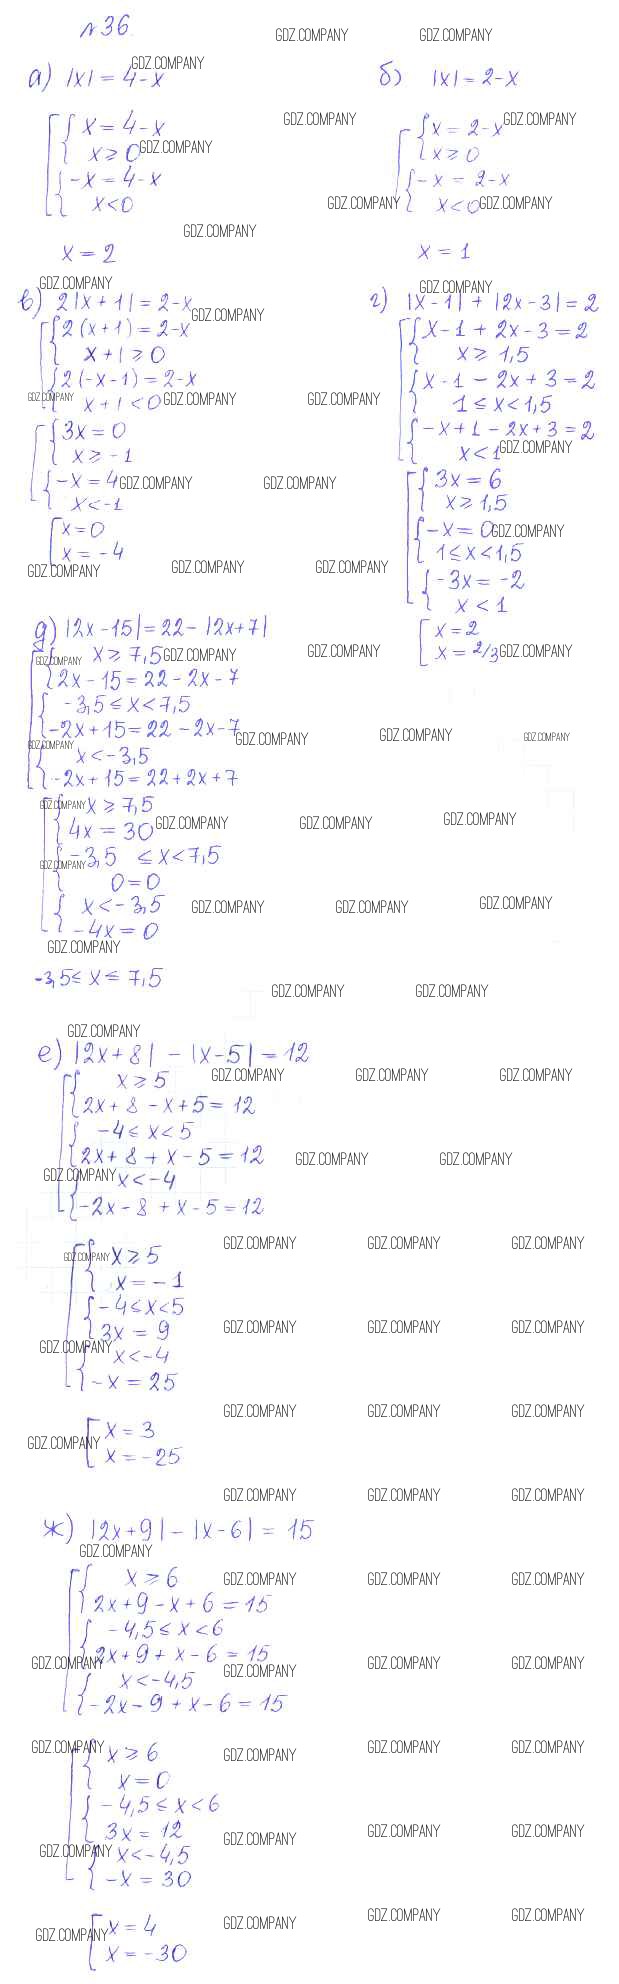 №36.
а) |x| = 4-x
x = 4-x
x ≥ 0
-x = 4-x
x < 0
x = 2
б) |x| = 2-x
x = 2-x
x ≥ 0
-x = 2-x
x < 0
x = 1
в) 2|x+1| = 2-x
2(x+1) = 2-x
x+1 ≥ 0
2(-x-1) = 2-x
x+1 < 0
3x = 0
x ≥ -1
-x = 4
x < -1
x = 0
x = -4
г) |x-1| + |2x-3| = 2
x-1 + 2x-3 = 2
x ≥ 1,5
x-1 - 2x+3 = 2
1 ≤ x < 1,5
-x+1 - 2x+3 = 2
x < 1
3x = 6
x ≥ 1,5
-x = 0
1 ≤ x < 1,5
-3x = -2
x < 1
x = 2
x = 2/3
д) |2x-15| = 22 - |2x+7|
x ≥ 7,5
2x-15 = 22-2x-7
-3,5 ≤ x < 7,5
-2x+15 = 22-2x-7
x < -3,5
-2x+15 = 22+2x+7
x ≥ 7,5
4x = 30
-3,5 ≤ x < 7,5
0 = 0
x < -3,5
-4x = 0
-3,5 ≤ x ≤ 7,5
е) |2x+8| - |x-5| = 12
x ≥ 5
2x+8 - x+5 = 12
-4 ≤ x < 5
2x+8 + x-5 = 12
x < -4
-2x-8 + x-5 = 12
x ≥ 5
x = -1
-4 ≤ x < 5
3x = 9
x < -4
-x = 25
x = 3
x = -25
ж) |2x+9| - |x-6| = 15
x ≥ 6
2x+9 - x+6 = 15
-4,5 ≤ x < 6
2x+9 + x-6 = 15
x < -4,5
-2x-9 + x-6 = 15
x ≥ 6
x = 0
-4,5 ≤ x < 6
3x = 12
x < -4,5
-x = 30
x = 4
x = -30
GDZ.COMPANY